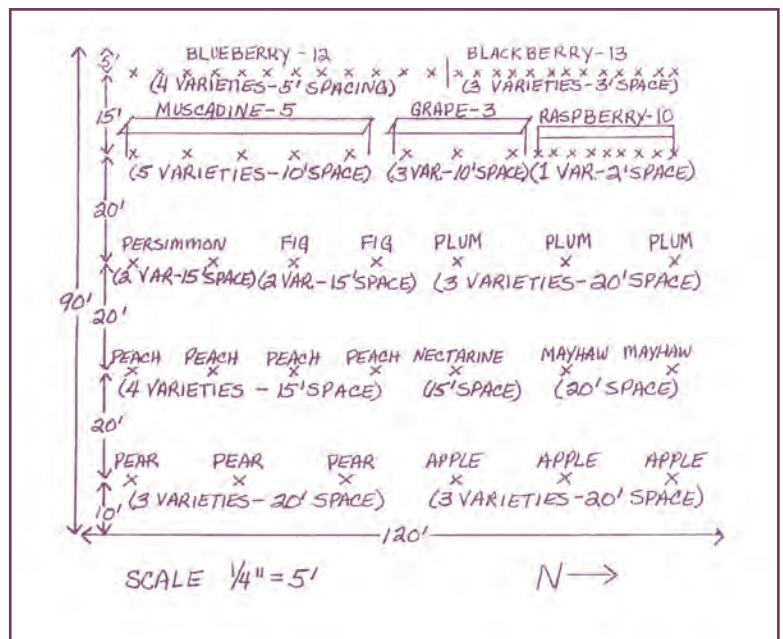 5' BLUEBERRY-12 BLACKBERRY-13
(4 VARIETIES-5' SPACING) (3 VARIETIES-3' SPACE)
15' MUSCADINE-5 GRAPE-3 RASPBERRY-10
(5 VARIETIES-10' SPACE) (3 VAR.-10' SPACE) (1 VAR.-2' SPACE)
20'
PERSIMMON FIG FIG PLUM PLUM PLUM
(2 VAR-15' SPACE) (2 VAR.-15' SPACE) (3 VARIETIES-20' SPACE)
90'
20'
PEACH PEACH PEACH PEACH NECTARINE MAYHAW MAYHAW
(4 VARIETIES - 15' SPACE) (15' SPACE) (20' SPACE)
20'
PEAR PEAR PEAR APPLE APPLE APPLE
10' (3 VARIETIES-20' SPACE) (3 VARIETIES-20' SPACE)
120'
SCALE 1/4" = 5' N